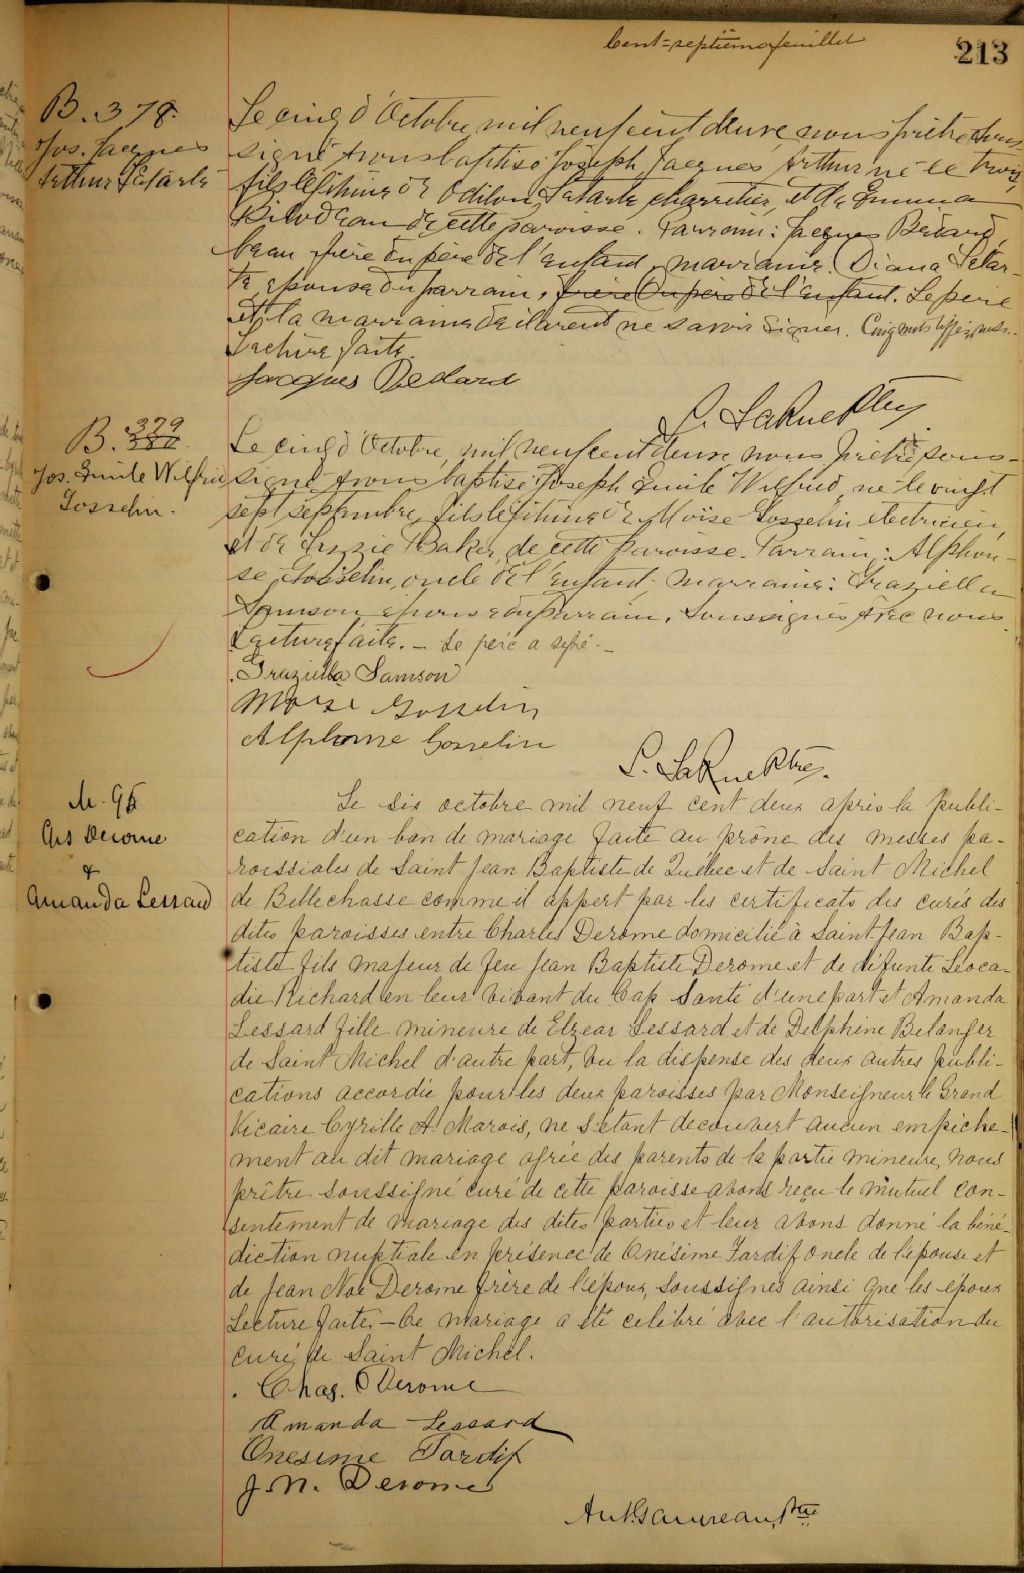 Cent-septième feuillet
213
B. 378.
Jos. Jacques
Arthur Letarte
Le cinq d'Octobre mil neuf cent deux nous prêtre sous-
signé avons baptisé Joseph Jacques Arthur né le trois,
fils légitime de Odilon Letarte charretier, et de Emma
Bilodeau de cette paroisse. Parrain: Jacques Bédard,
beau frère du père de l'enfant, marraine: Diana Letar-
te epouse du parrain, frère du père de l'enfant. Le père
et la marraine déclarent ne savoir signer. Cinq mots biffés nuls.
Lecture faite.
Jacques Bedard
S. LaRue Ptre
B. 379
380
Jos. Emile Wilfrid
Gosselin.
Le cinq d'Octobre, mil neuf cent deux nous prêtre sous-
signé avons baptisé Joseph Emile Wilfrid, né le vingt
sept septembre, fils légitime de Moïse Gosselin électricien,
et de Lizzie Baker, de cette paroisse. Parrain: Alphon-
se Gosselin, oncle de l'enfant; marraine: Graziella
Samson épouse du parrain, soussignés avec nous.
Lecture faite. - Le père a signé. -
Graziella Samson
Moise Gosselin
Alphonse Gosselin
S. LaRue Ptre.
M. 95
Chs Derome
&
Amanda Lessard
Le six octobre mil neuf cent deux après la publi-
cation d'un ban de mariage faite au prône des messes pa-
roissiales de Saint Jean Baptiste de Québec et de Saint Michel
de Bellechasse comme il appert par les certificats des curés des
dites paroisses entre Charles Derome domicilié à Saint-Jean Bap-
tiste fils majeur de feu Jean Baptiste Derome et de défunte Léoca-
die Richard en leur vivant du Cap Santé d'une part et Amanda
Lessard fille mineure de Elzear Lessard et de Delphine Belanger
de Saint Michel d'autre part, vu la dispense des deux autres publi-
cations accordée pour les deux paroisses par Monseigneur le Grand
Vicaire Cyrille A. Marois, ne s'étant decouvert aucun empêche-
ment au dit mariage agrée des parents de la partie mineure, nous
prêtre soussigné curé de cette paroisse avons reçu le mutuel con-
sentement de mariage des dites parties et leur avons donné la béné-
diction nuptiale en présence de Onésime Tardif oncle de l'épouse et
de Jean Noé Derome frère de l'époux, soussignés ainsi que les époux
Lecture faite. - Ce mariage a été célébré avec l'autorisation du
curé de Saint Michel.
Chas. Derome
Amanda Lessard
Onesime Tardif
J. N. Derome
Ant. Gauvreau, Ptre